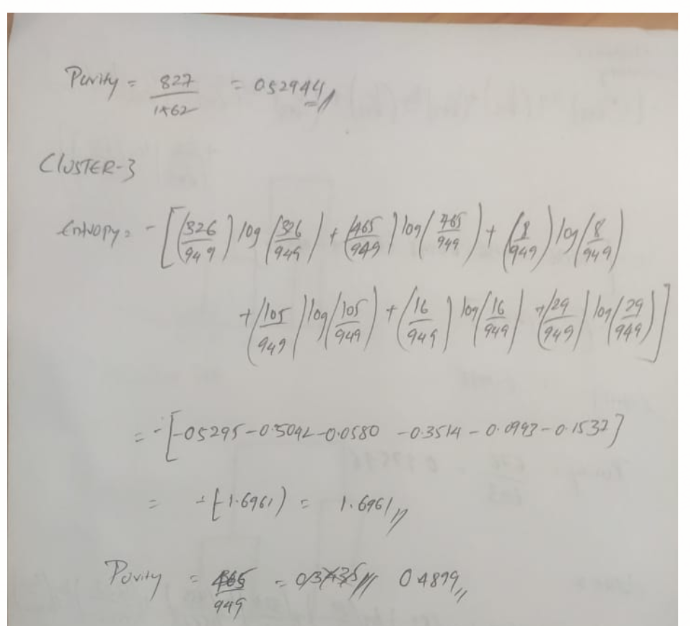 Purity = 827/1562 = 0.52944
CLUSTER-3
Entropy = -[(326/949) log (326/949) + (465/949) log (465/949) + (8/949) log (8/949)
+ (105/949) log (105/949) + (16/949) log (16/949) + (29/949) log (29/949)]
= -[-0.5295 - 0.5042 - 0.0580 - 0.3514 - 0.0993 - 0.1537]
= -(-1.6961) = 1.6961
Purity = 465/949 = 0.4899